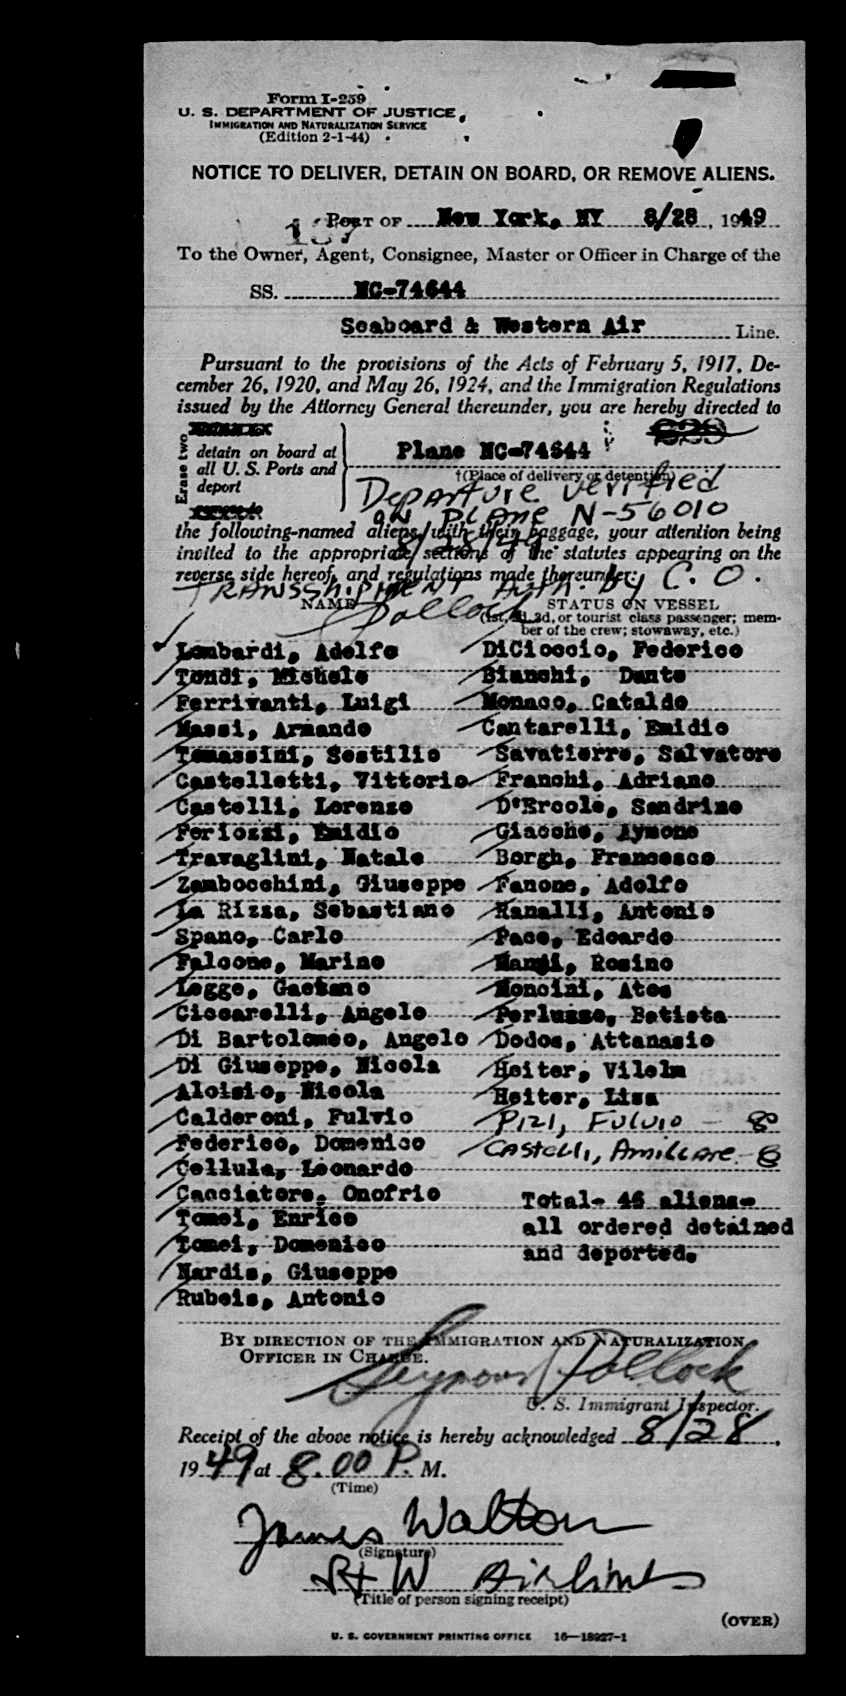 Form I-259
U. S. DEPARTMENT OF JUSTICE
IMMIGRATION AND NATURALIZATION SERVICE
(Edition 2-1-44)
NOTICE TO DELIVER, DETAIN ON BOARD, OR REMOVE ALIENS.
PORT OF New York, NY 8/28, 1949
To the Owner, Agent, Consignee, Master or Officer in Charge of the
SS. NC-74644
Seaboard & Western Air Line.
Pursuant to the provisions of the Acts of February 5, 1917, De-
cember 26, 1920, and May 26, 1924, and the Immigration Regulations
issued by the Attorney General thereunder, you are hereby directed to
Erase two
detain on board at
all U. S. Ports and
deport
Plane NC-74644
†(Place of delivery or detention)
Departure verified
on plane N-56010
8/28/49
the following-named aliens, with their baggage, your attention being
invited to the appropriate sections of the statutes appearing on the
reverse side hereof, and regulations made thereunder:
TRANSSHIPMENT Auth. by C. O.
Pollock
NAME
STATUS ON VESSEL
(1st, 2d, 3d, or tourist class passenger; mem-
ber of the crew; stowaway, etc.)
Lombardi, Adolfo DiCioccio, Federico
Tondi, Michele Bianchi, Dante
Ferrivanti, Luigi Monaco, Cataldo
Massi, Armando Cantarelli, Emidio
Tomassini, Sestilio Savatierre, Salvatore
Castelletti, Vittorio Franchi, Adriano
Castelli, Lorenzo D'Ercole, Sandrino
Feriozzi, Emidio Giacche, Aymone
Travaglini, Natale Borgh, Francesco
Zambocchini, Giuseppe Fanone, Adolfo
La Rizza, Sebastiano Ranalli, Antonio
Spano, Carlo Pace, Edoardo
Falcone, Marino Rosino
Legge, Gaetano Moncini, Atos
Ciccarelli, Angelo Perluzzo, Batista
Di Bartolomeo, Angelo Dodos, Attanasio
Di Giuseppe, Nicola Heiter, Vilelm
Aloisio, Nicola Heiter, Lisa
Calderoni, Fulvio Pizi, Fulvio - 8
Federico, Domenico Castelli, Amilcare - 8
Cellula, Leonardo
Cacciatore, Onofrio Total- 46 aliens-
Tomei, Enrico all ordered detained
Tomei, Domenico and deported.
Nardis, Giuseppe
Rubeis, Antonio
BY DIRECTION OF THE IMMIGRATION AND NATURALIZATION
OFFICER IN CHARGE.
Seymour Pollock
U. S. Immigrant Inspector.
Receipt of the above notice is hereby acknowledged 8/28,
1949 at 8.00 P. M.
(Time)
James Walton
(Signature)
S+W Airlines
(Title of person signing receipt)
(OVER)
U. S. GOVERNMENT PRINTING OFFICE 16—18927-1